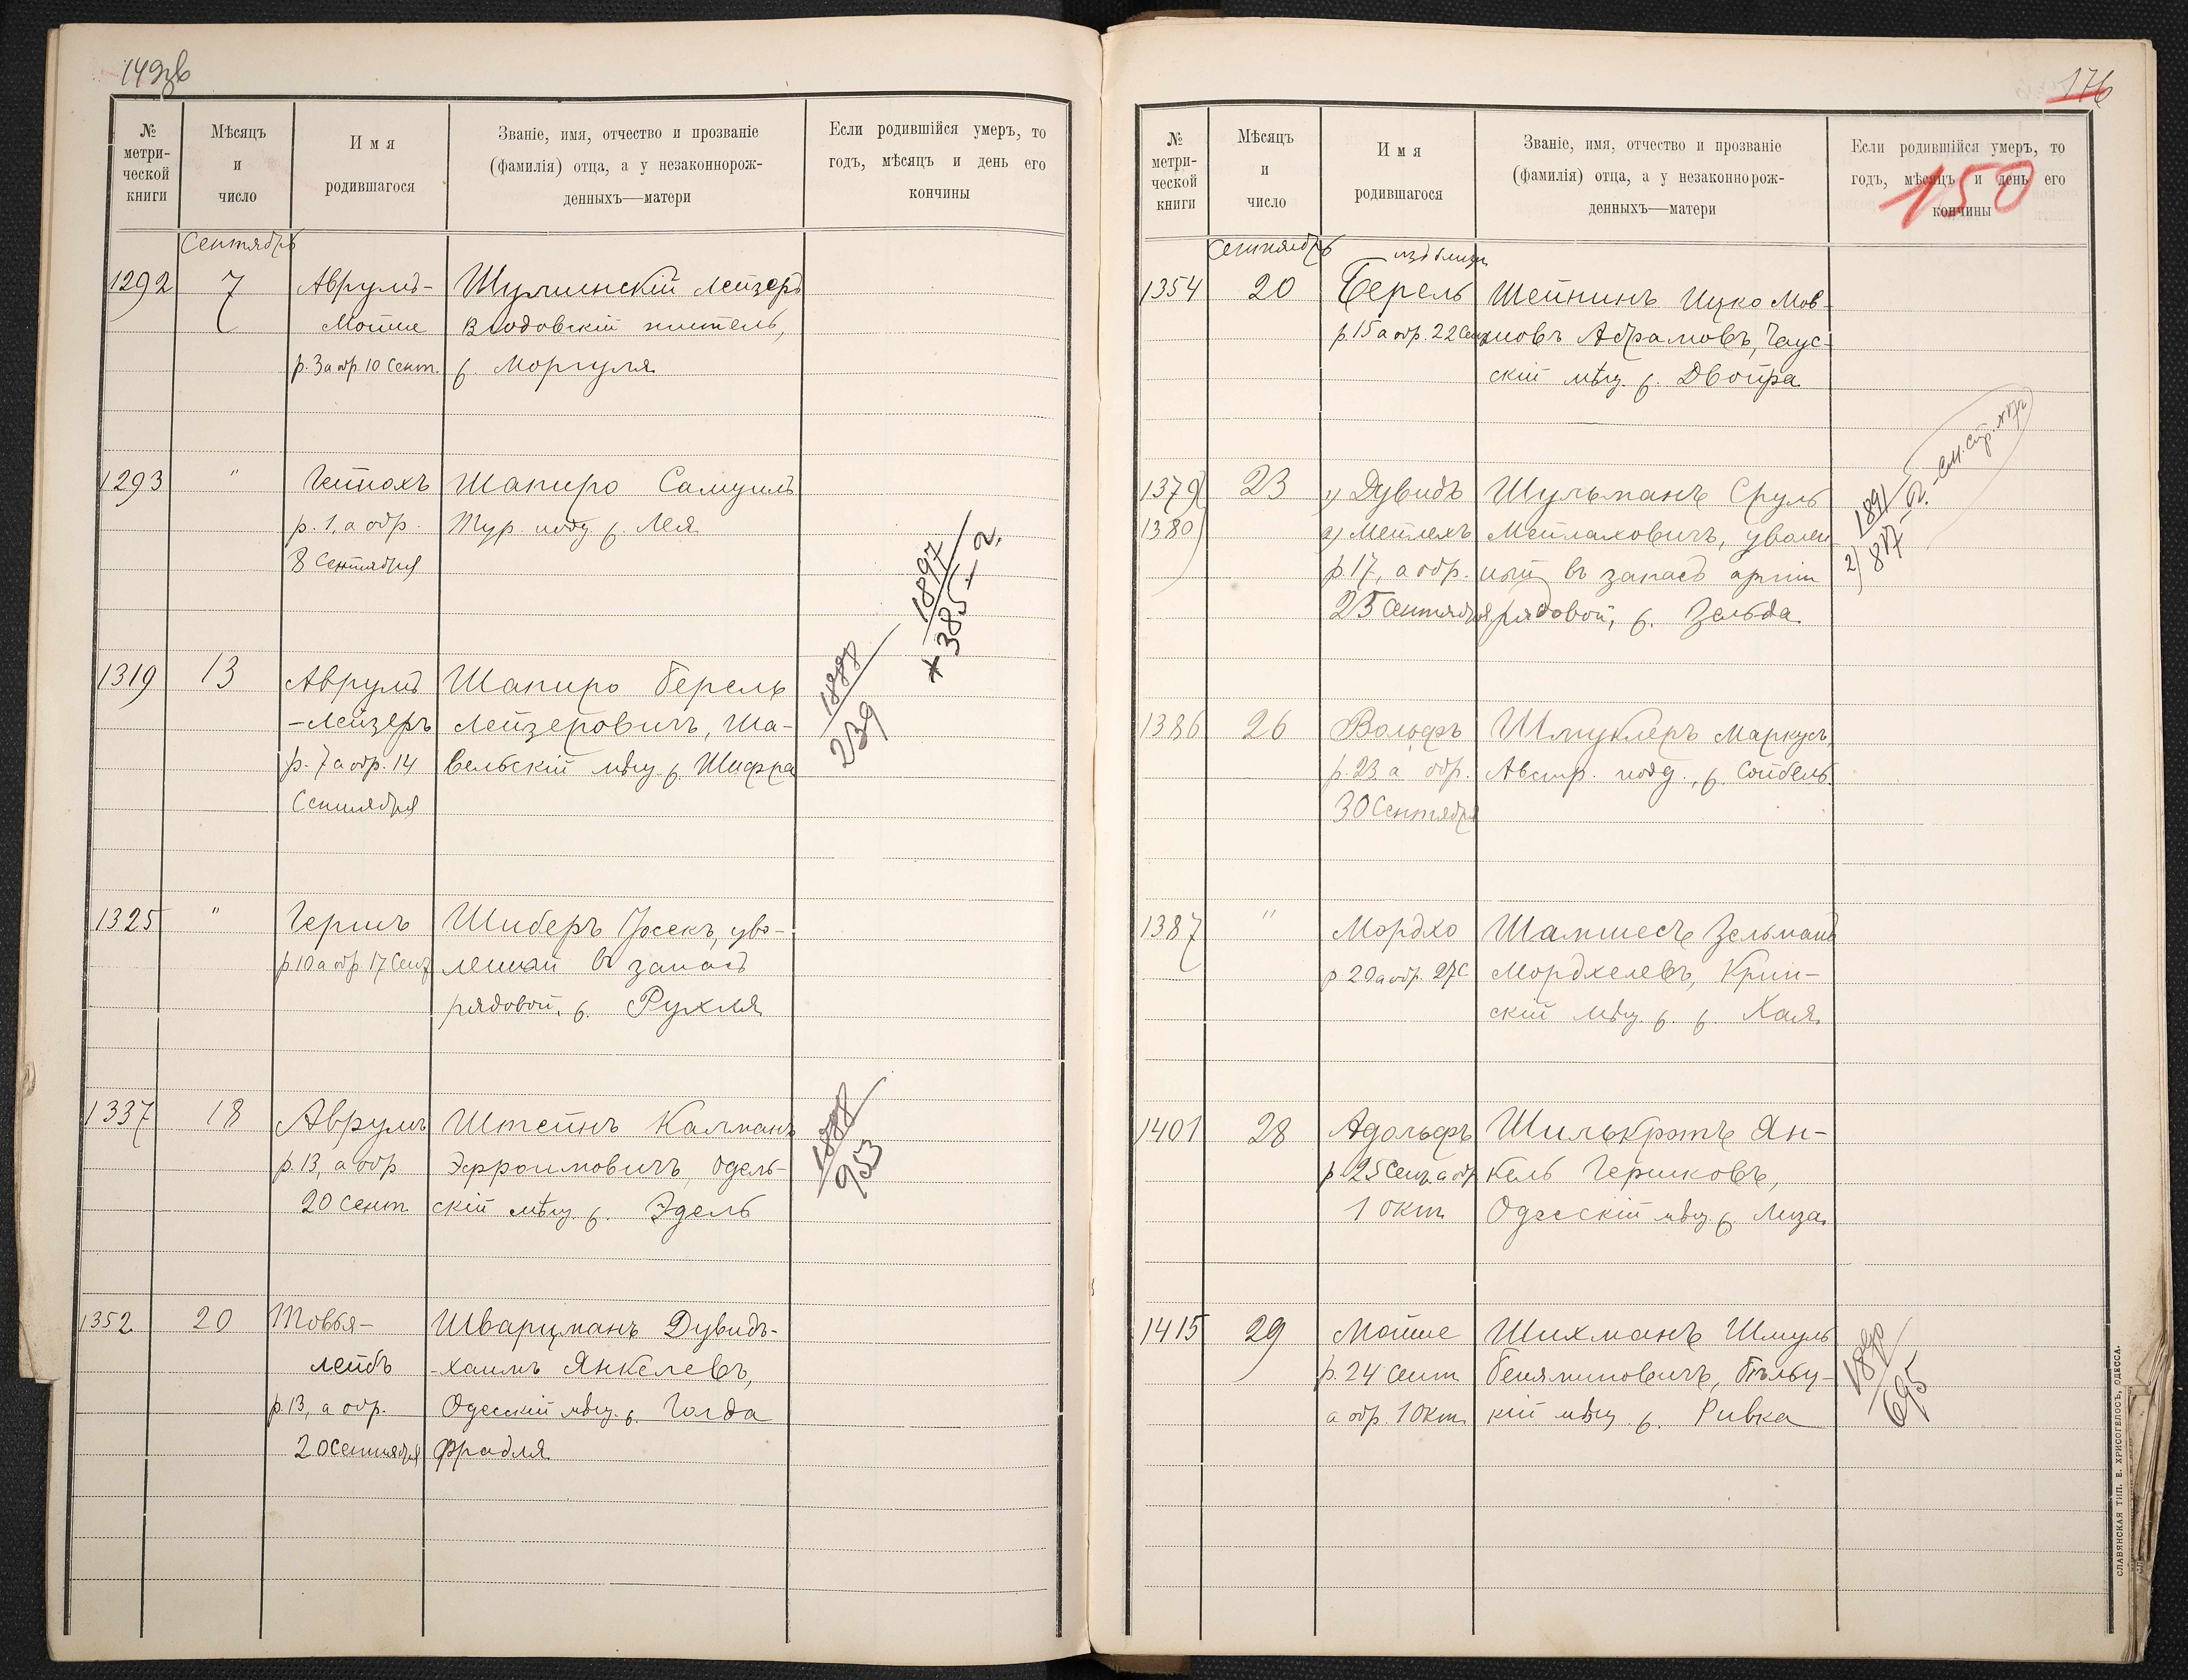 149зв
№ метри-ческой книги
Мѣсяцъ и число
Имя родившагося
Званіе, имя, отчество и прозваніе
(фамилія) отца, а у незаконнорож-
денныхъ—матери
Если родившійся умеръ, то
годъ, мѣсяцъ и день его
кончины
Сентябрь
1292 7 Аврумъ- Шулинскій Лейзеръ
Мойше Влодовскій житель,
р. 3 а обр. 10 Сент. ж. Моргуля
1293 " Гейнохъ Шапиро Самуилъ
р. 1, а обр. Тур. подд. ж. Лея
8 Сентября
1897
*385-г.
1319 13 Аврумъ Шапиро Берель
-Лейзеръ Лейзеровичъ, Ша-
р. 7 а обр. 14 вельскій мѣщ. ж. Шифра
Сентября
1888
239
1325 " Гершъ Шиберъ Іосекъ, уво-
р. 10 а обр. 17 Сент. ленный въ запасъ
рядовой, ж. Рухля
1337 18 Аврумъ Штейнъ Калманъ
р. 13, а обр Эфроимовичъ, Одель-
20 Сент. скій мѣщ. ж. Эдель
1888
953
1352 20 Товья- Шварцманъ Дувидъ-
лейбъ -Хаимъ Янкелевъ,
р. 13, а обр. Одесскій мѣщ. ж. Голда
20 Сентября Фрадля
176
№ метри-ческой книги
Мѣсяцъ и число
Имя родившагося
Званіе, имя, отчество и прозваніе
(фамилія) отца, а у незаконнорож-
денныхъ—матери
Если родившійся умеръ, то
годъ, мѣсяцъ и день его
кончины
150
Сентябрь
1354 20 Берель Шейнинъ Ицко Мов-
р. 15 а обр. 22 Сент. шовъ Абрамовъ, Чаус-
скій мѣщ. ж. Двойра
1379 23 1) Дувидъ Шульманъ Сруль
1380 2) Мейлехъ Мейлаховичъ, уволен-
р. 17, а обр. ный въ запасъ арміи
25 Сентября рядовой, ж. Зельда
2) 1891
817
См. стр.
1386 26 Вольфъ Шмуклеръ Маркусъ,
р. 23 а обр. Австр. подд., ж. Сойбель
30 Сентября
1387 " Мордхо Шамшесъ Зельманъ
р. 20 а обр. 27 С Мордхелевъ, Крин-
скій мѣщ. ж. ж. Хая
1401 28 Адольфъ Шилькротъ Ян-
р. 25 Сент. а обр кель Гершковъ,
1 Окт. Одесскій мѣщ. ж. Лиза
1415 29 Мойше Шихманъ Шмуль
р. 24 Сент Беняминовичъ, Бѣльц-
а обр. 1 Окт. кій мѣщ. ж. Ривка
1890
695
СЛАВЯНСКАЯ ТИП. Е. ХРИСОГЕЛОСЪ, ОДЕССА.